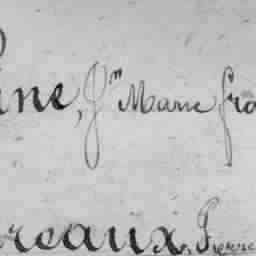 ine, Jn Marie fra
reaux, Pierre